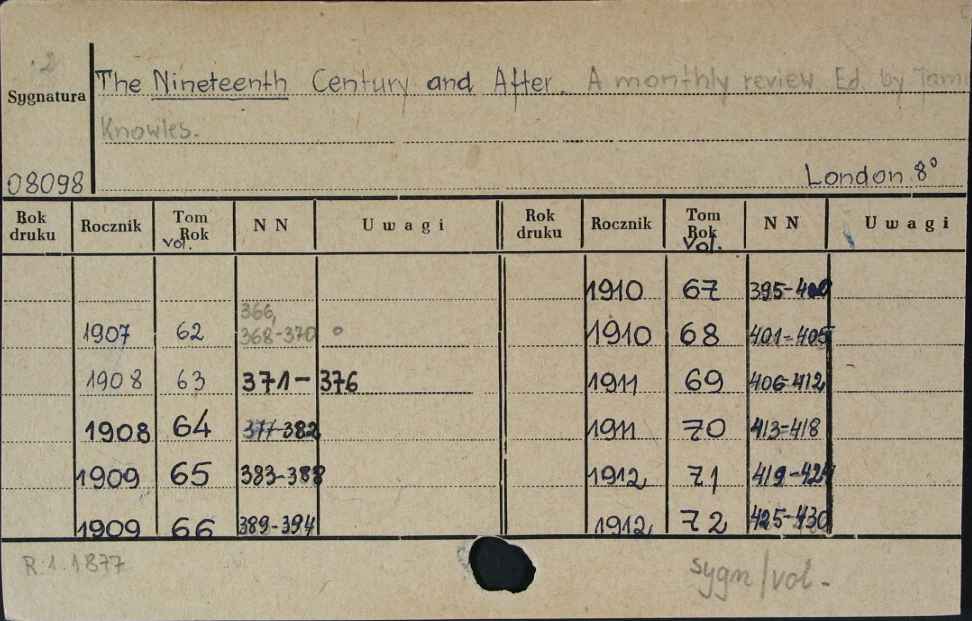 2
Sygnatura
The Nineteenth Century and After. A monthly review Ed. by Jam
Knowles.
08098
London 8°
Rok druku Rocznik Tom Rok vol. N N Uwagi Rok druku Rocznik Tom Rok Vol. N N Uwagi
1910 67 395-400
1907 62 366, 368-370 1910 68 401-405
1908 63 371-376 1911 69 406-412
1908 64 377-382 1911 70 413-418
1909 65 383-388 1912 71 419-424
1909 66 389-394 1912 72 425-430
R.1.1877
sygn/vol.